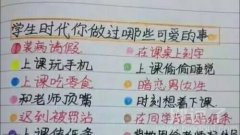 学生时代你做过哪些可爱的事
装病请假
在课桌上刻字
上课玩手机
上课偷偷睡觉
上课吃零食
暗恋男(女)生
和老师顶嘴
时刻想着下课
迟到被罚站
在同学背后贴纸条
上课传纸条